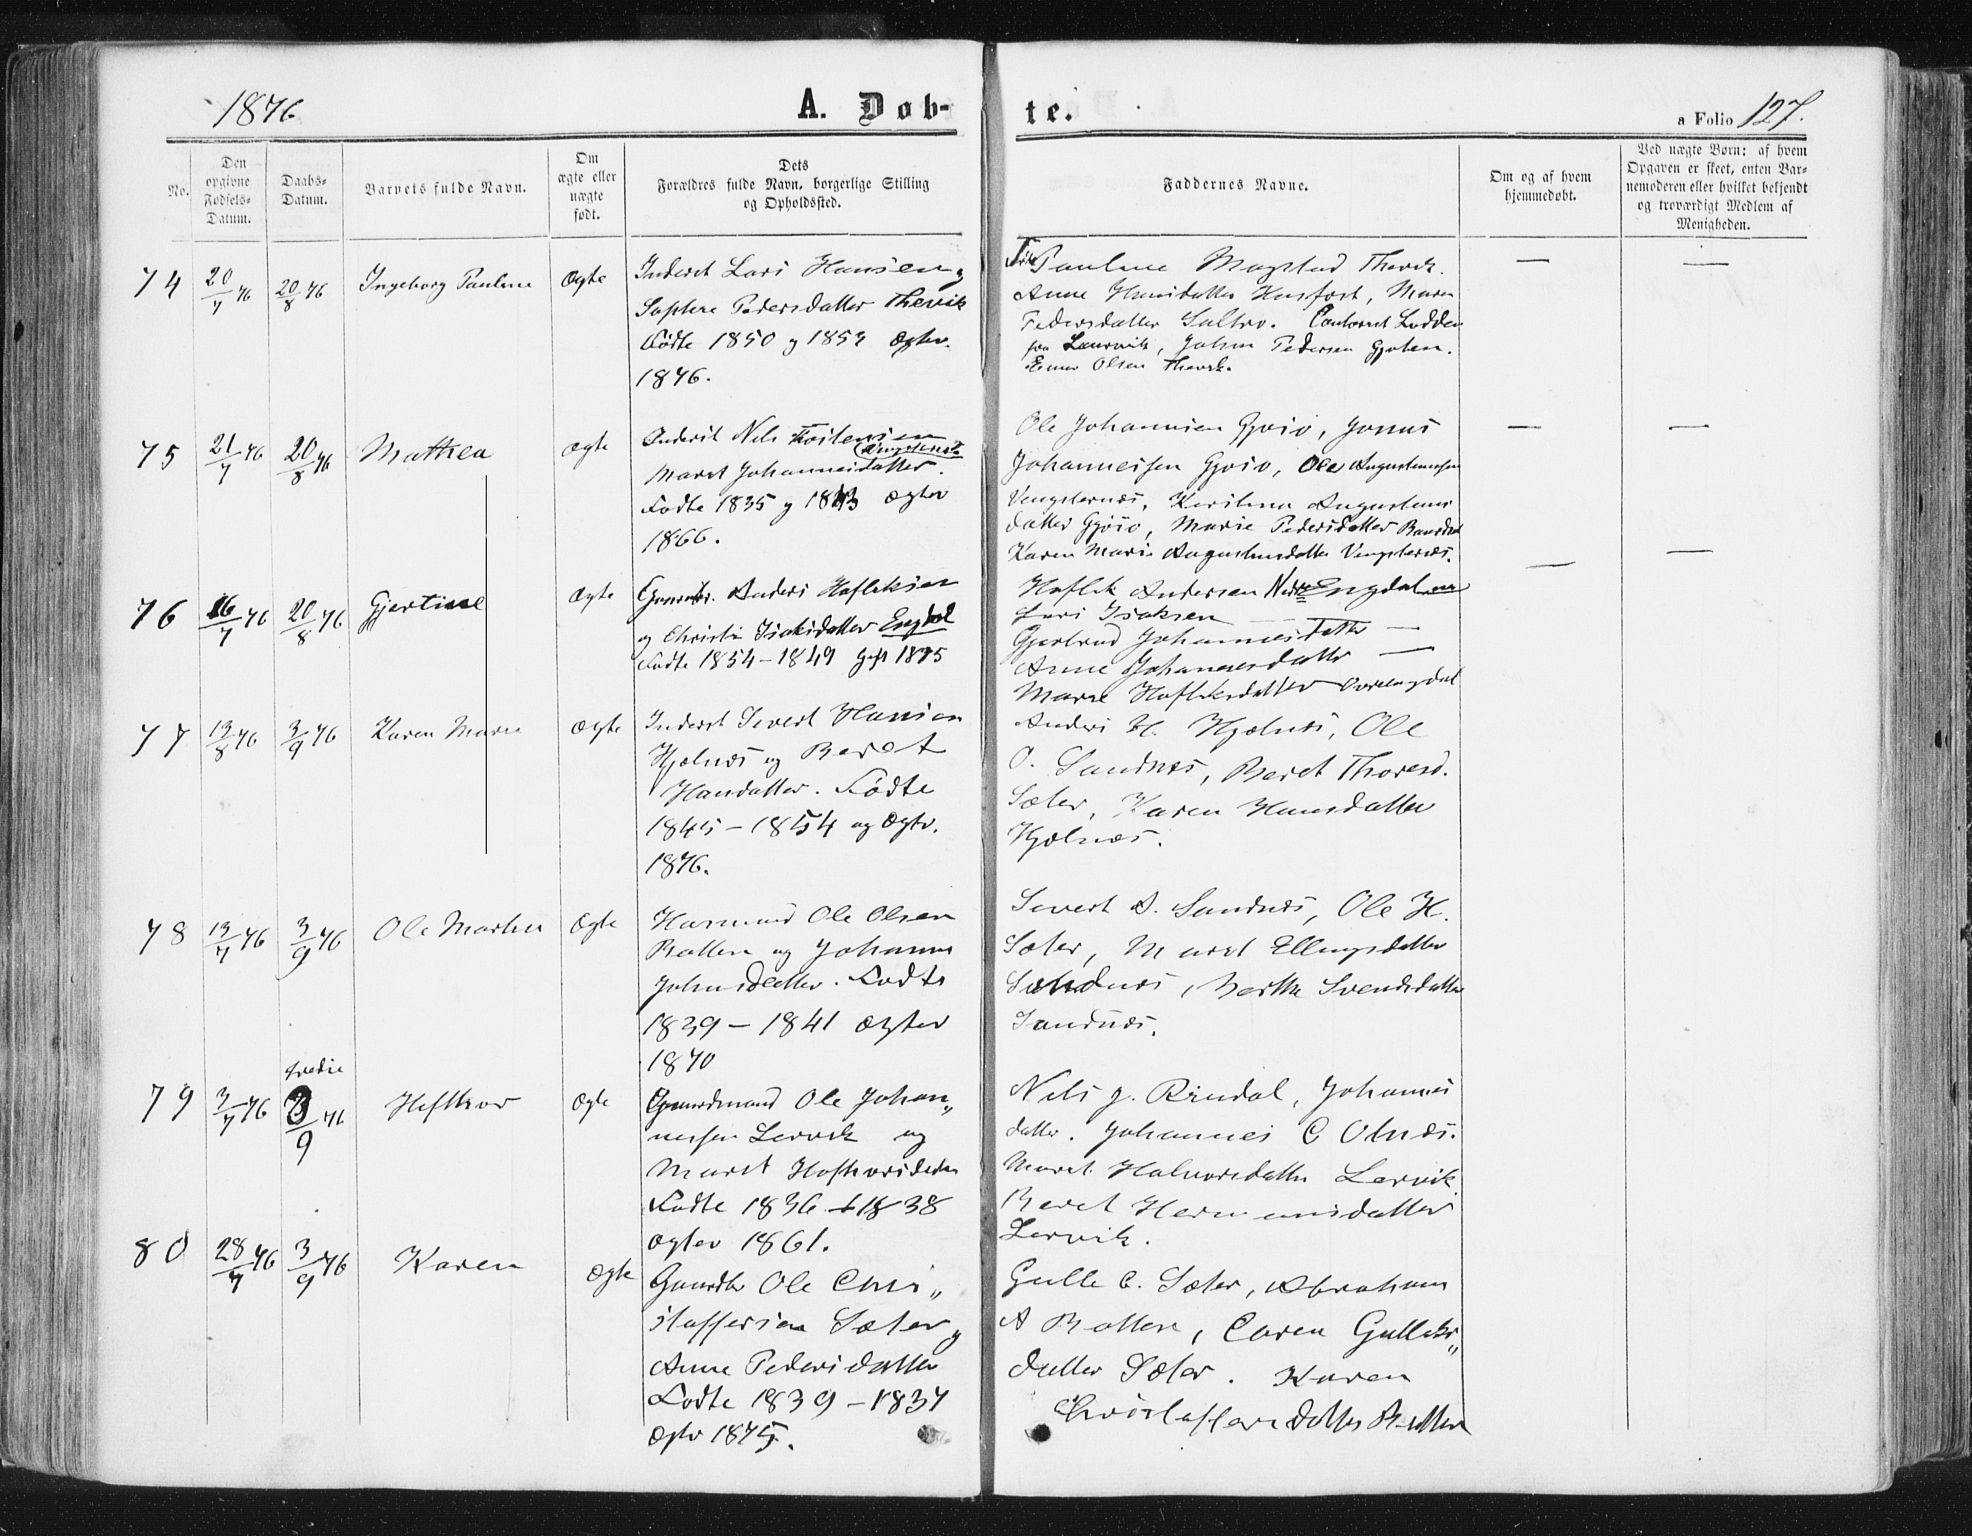 1876
A. Døb-
te.
a Folio 127.
No.
Den
opgivne
Fødsels-
Datum.
Daabs-
Datum.
Barnets fulde Navn.
Om
ægte eller
uægte
født.
Dets
Forældres fulde Navn, borgerlige Stilling
og Opholdssted.
Faddernes Navne.
Om og af hvem
hjemmedøbt.
Ved uægte Børn: af hvem
Opgaven er skeet, enten Bar-
nemoderen eller hvilket bekjendt
og troværdigt Medlem af
Menigheden.
74 20/7 76 20/8 76 Ingeborg Pauline Ægte
Inderst Lars Hansen og
Pedersdatter Thevik
Fødte 1850 og 1853 Ægtev.
1876.
Pauline Magstad Thevik.
Anne Hansdatter, Maren
Pedersdatter. Lodden
fra Laurvik, Johan Pedersen
Olsen Thevik.
— —
75 21/7 76 20/8 76 Mathea ægte
Inderst Nils
Vengstenæs
Maret Johannesdatter.
Fødte 1835 og 1843 Ægtev
1866.
Ole Johannsen Gjøsø, Jonas
Johannessen Gjøsø, Ole Augustinussen
Vengsternæs, Augustinus
datter Gjøsø, Marie Pedersdatter
Karen Marie Augustinusdatter Vengsternæs.
— —
76 16/7 76 20/8 76 Gjertine Ægte
Gaardbr. Anders Hafteksen
og Christi Isaksdatter Engdal
Fødte 1854 – 1849 Gift 1875
Andersen Nedre Engdal
Lars Isaksen —
Gjertrud Johannesdatter —
Anne Johannesdatter —
Marie
— —
77 13/8 76 3/9 76 Karen Marie Ægte
Inderst Sivert Hansen
Hjelnæs og Beret
Hansdatter. Fødte
1845 – 1854 og Ægtv.
1876.
Anders H. Hjelnæs, Ole
O. Sandnæs, Beret Thoresd.
Sæter, Karen Hansdatter
Hjelnæs.
78 13/7 76 3/9 76 Ole Martin Ægte
Husmand Ole Olsen
Batten og Johanna
Johnsdatter. Fødte
1839 – 1841 Ægtev
1870
Sivert S. Sandnæs, Ole H.
Sæter, Marit Ellingsdatter
Sandnæs, Berthe Svendsdatter
Sandnæs.
tredie
79 3/7 76 3/9 76 Hafthor Ægte
Gaardmand Ole Johan„
nessen Lervik og
Maret Hafthorsdatter
Fødte 1836 – 1838
ægtev 1861.
Nils J. Rindal, Johannes
datter. Johannes C Olnæs.
Maret Halvorsdatter Lervik
Beret Hermansdatter
Lervik.
80 28/7 76 3/9 76 Karen Ægte
Gaardbr Ole Chri„
stoffersen Sæter og
Anne Pedersdatter
Fødte 1839 – 1837
Ægtv 1875.
Gulle C. Sæter, Abraham
A Batten, Caren Gulleks„
datter Sæter. Karen
Christoffersdatter Batten